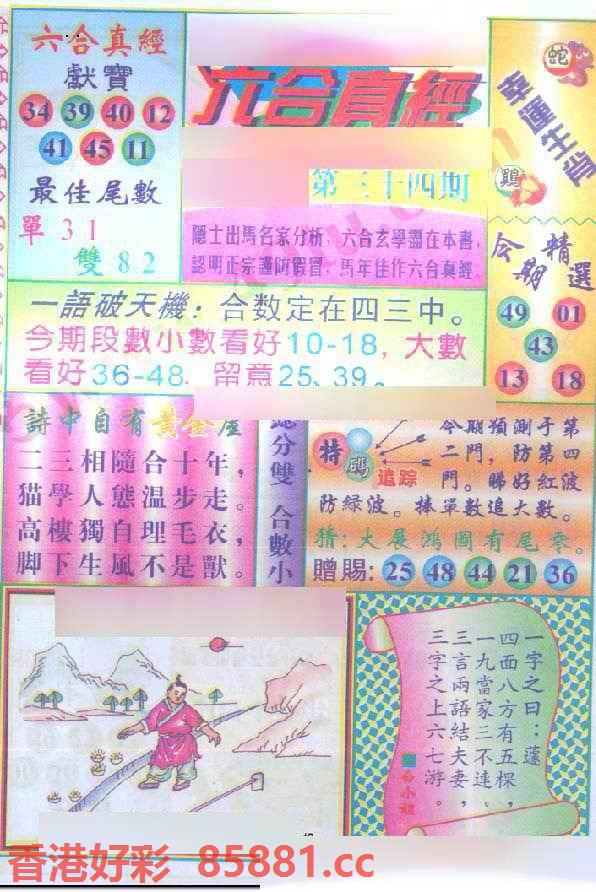 六合真經
獻寶
34 39 40 12
41 45 11
最佳尾數
單 3 1
雙 8 2
六合真經
第三十四期
隱士出馬名家分析，六合玄學盡在本書，
認明正宗謹防假冒，馬年佳作六合真經
蛇
幸運生肖
鷄
今期
精選
49 01
43
13 18
一語破天機：合数定在四三中。
今期段數小數看好10-18，大數
看好36-48，留意25、39。
詩中自有黄金屋
二三相隨合十年，
猫學人態温步走。
高樓獨自理毛衣，
脚下生風不是獸。
分雙 合數小
特碼
追踪
今期須測于第
二門，防第四
門。睇好紅波
防緑波。捧單數追大數。
猜：大展鴻圖有尾零。
贈賜：25 48 44 21 36
一字之曰：蓬
四面八方有五棵，
一九當家三不連。
三言兩語結夫妻，
三字之上六七游。
香港好彩 85881.cc